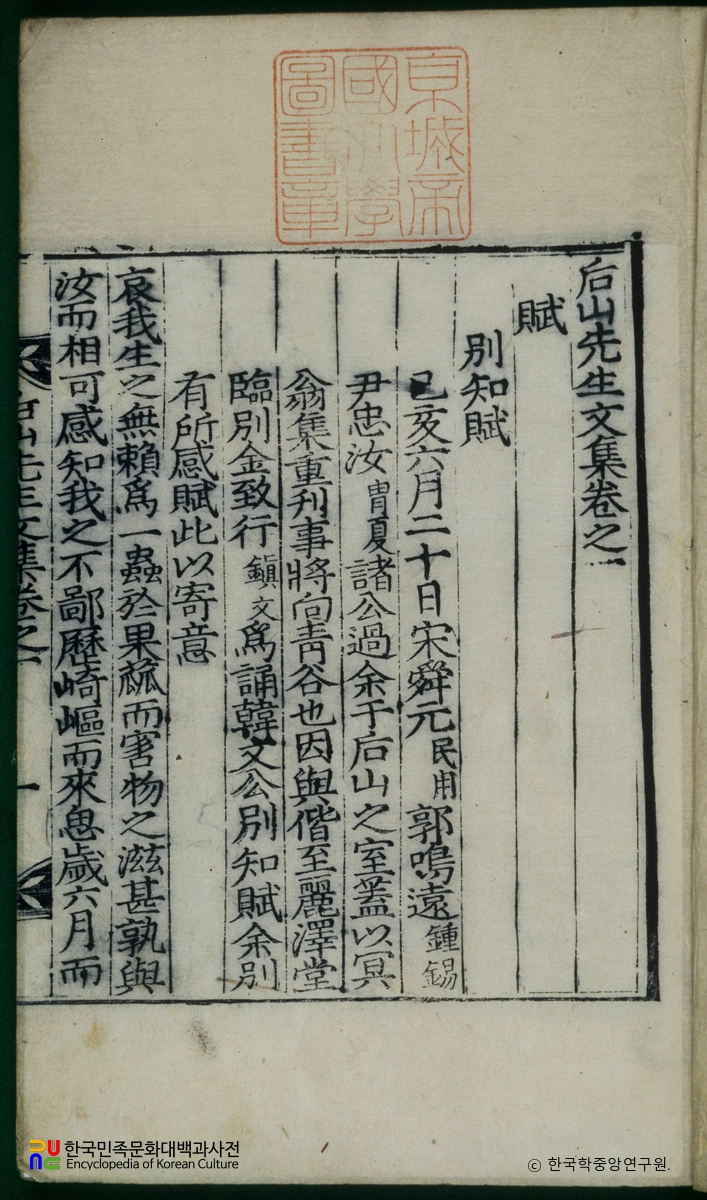 京城帝
國大學
圖書章
后山先生文集卷之一
賦
別知賦
己亥六月二十日宋舜元民用郭鳴遠鍾錫
尹忠汝冑夏諸公過余于后山之室蓋以冥
翁集重刋事將向靑谷也因與偕至麗澤堂
臨別金致行鎭文爲誦韓文公別知賦余別
有所感賦此以寄意
哀我生之無賴爲一蟲於果蓏而害物之滋甚孰與
汝而相可感知我之不鄙歷崎嶇而來息歲六月而
后山先生文集卷之一
一
한국민족문화대백과사전
Encyclopedia of Korean Culture
© 한국학중앙연구원.